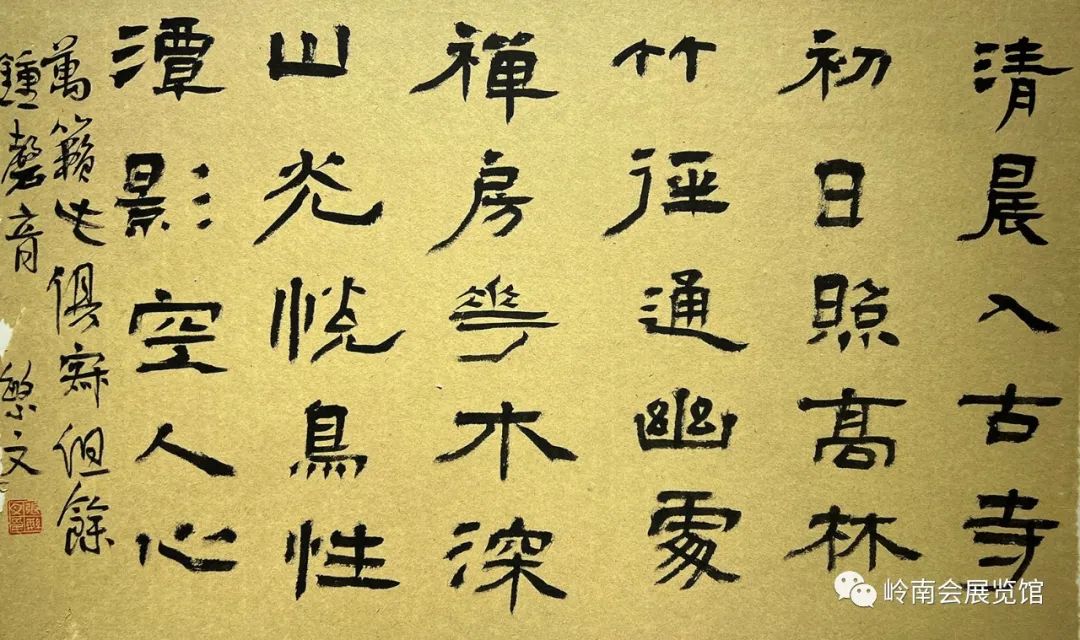 清晨入古寺
初日照髙林
竹徑通幽處
禪房華木深
山光悅鳥性
潭影空人心
萬籟此俱寂但餘
鍾磬音 繁文
岭南会展览馆